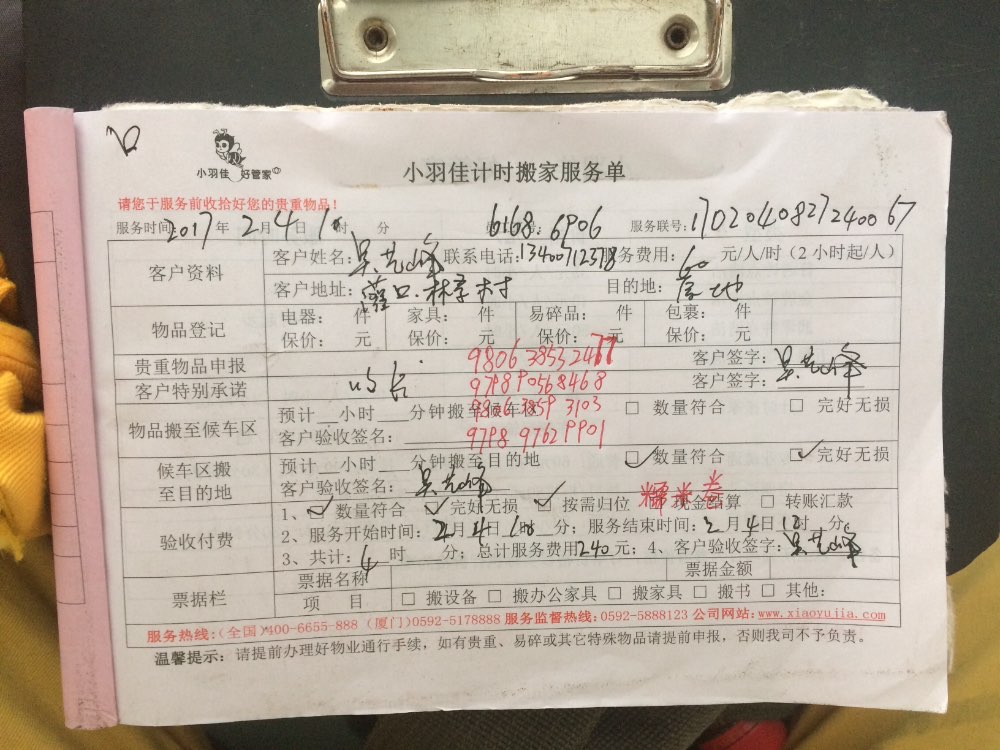 小羽佳 好管家
小羽佳计时搬家服务单
请您于服务前收拾好您的贵重物品!
服务时间: 2017年 2月 4日 时 分 6168 6906 服务联号: 170204082724006​7
客户资料
客户姓名: 联系电话: 13400712378 服务费用: 60 元/人/时 (2 小时起/人)
客户地址: 灌口. 村 目的地: 当地
物品登记
电器: 件 家具: 件 易碎品: 件 包裹: 件
保价: 元 保价: 元 保价: 元 保价: 元
贵重物品申报 9806 3853 2477 客户签字:
客户特别承诺 979890568468 客户签字:
物品搬至候车区
预计 小时 分钟搬至候车区 9806 3859 3103 □ 数量符合 □ 完好无损
客户验收签名: 9798 9762 9901
候车区搬至目的地
预计 小时 分钟搬至目的地 ☑ 数量符合 ☑ 完好无损
客户验收签名:
验收付费
1、 ☑ 数量符合 ☑ 完好无损 ☑ 按需归位 现金结算 □ 转账汇款
2、服务开始时间: 2月4日 时 分; 服务结束时间: 2月4日 时 分。
3、共计: 4 时 分; 总计服务费用 240 元; 4、客户验收签字:
票据栏
票据名称 票据金额
项 目 □ 搬设备 □ 搬办公家具 □ 搬家具 □ 搬书 □ 其他:
服务热线:(全国)400-6655-888 (厦门)0592-5178888 服务监督热线:0592-5888123 公司网站:www.xiaoyujia.com
温馨提示: 请提前办理好物业通行手续, 如有贵重、易碎或其它特殊物品请提前申报, 否则我司不予负责。